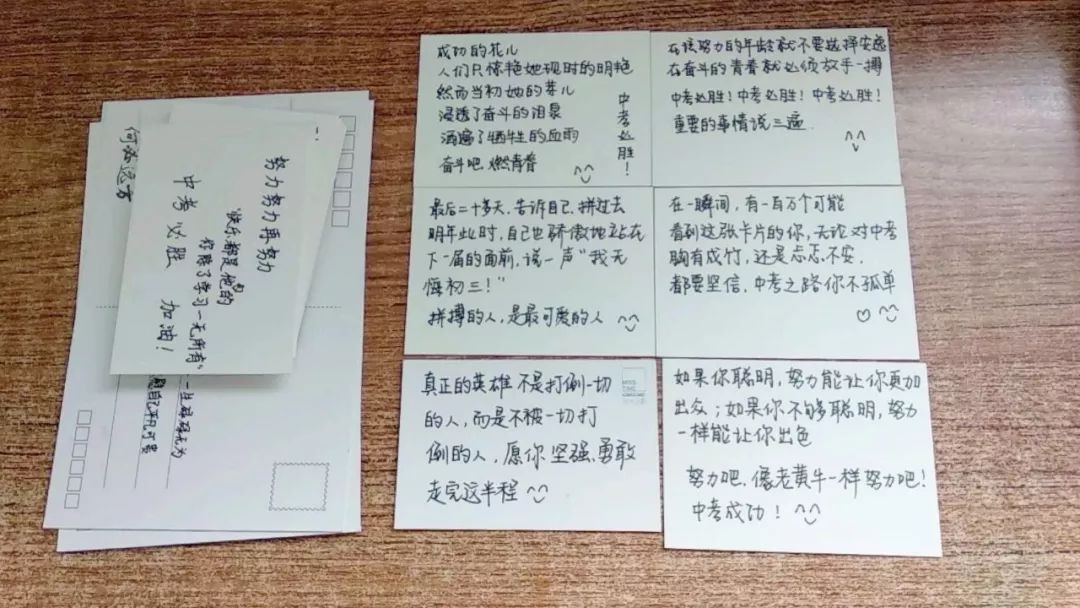 努力努力再努力
"快乐都是他的
你除了学习一无所有"
中考必胜 加油！
成功的花儿
人们只惊艳她现时的明艳
然而当初她的芽儿
浸透了奋斗的泪泉
洒遍了牺牲的血雨
奋斗吧，燃青春
中考必胜！
在该努力的年龄就不要选择安逸
在奋斗的青春就必须放手一搏
中考必胜！中考必胜！中考必胜！
重要的事情说三遍
最后二十多天，告诉自己，拼过去
明年此时，自己也骄傲地站在
下一届的面前，说一声"我无
悔初三！"
拼搏的人，是最可爱的人
在一瞬间，有一百万个可能
看到这张卡片的你，无论对中考
胸有成竹，还是忐忑不安，
都要坚信，中考之路你不孤单
真正的英雄不是打倒一切
的人，而是不被一切打
倒的人，愿你坚强、勇敢
走完这半程
如果你聪明，努力能让你更加
出众；如果你不够聪明，努力
一样能让你出色
努力吧，像老黄牛一样努力吧！
中考成功！